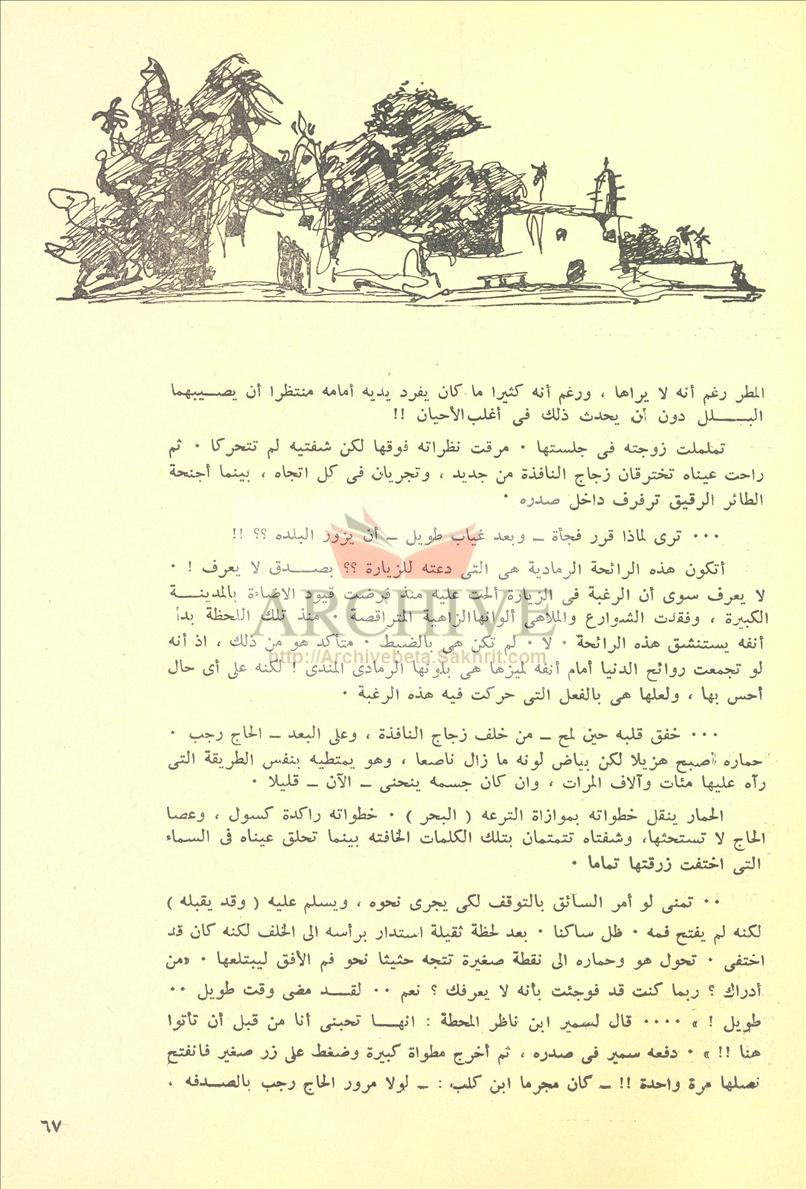 المطر رغم أنه لا يراها ، ورغم أنه كثيرا ما كان يفرد يديه أمامه منتظرا أن يصــيبهما
البـــلل دون أن يحدث ذلك فى أغلب الأحيان !!
تململت زوجته فى جلستها ٠ مرقت نظراته فوقها لكن شفتيه لم تتحركا ٠ ثم
راحت عيناه تخترقان زجاج النافذة من جديد ، وتجريان فى كل اتجاه ، بينما أجنحة
الطائر الرقيق ترفرف داخل صدره ٠
٠٠٠ ترى لماذا قرر فجأة ــ وبعد غياب طويل ــ أن يزور البلده ؟؟ !!
أتكون هذه الرائحة الرمادية هى التى دعته للزيارة ؟؟ بصــدق لا يعرف ! ٠
لا يعرف سوى أن الرغبة فى الزيارة ألحت عليه منذ فرضت قيود الاضاءة بالمدينــة
الكبيرة ، وفقدت الشوارع والملاهى ألوانها الزاهية المتراقصة ٠ منذ تلك اللحظة بدأ
أنفه يستنشق هذه الرائحة ٠ لا ٠ لم تكن هى بالضبط ٠ متأكد هو من ذلك ، اذ أنه
لو تجمعت روائح الدنيا أمام أنفه لميزها هى بلونها الرمادى المندى ! لكنه على أى حال
أحس بها ، ولعلها هى بالفعل التى حركت فيه هذه الرغبة ٠
٠٠٠ خفق قلبه حين لمح ــ من خلف زجاج النافذة ، وعلى البعد ــ الحاج رجب ٠
حماره أصبح هزيلا لكن بياض لونه ما زال ناصعا ، وهو يمتطيه بنفس الطريقة التى
رآه عليها مئات وآلاف المرات ، وان كان جسمه ينحنى ــ الآن ــ قليلا ٠
الحمار ينقل خطواته بموازاة الترعه ( البحر ) ٠ خطواته راكدة كسول ، وعصا
الحاج لا تستحثها، وشفتاه تتمتمان بتلك الكلمات الخافته بينما تحلق عيناه فى السماء
التى اختفت زرقتها تماما ٠
٠٠ تمنى لو أمر السائق بالتوقف لكى يجرى نحوه ، ويسلم عليه ( وقد يقبله )
لكنه لم يفتح فمه ٠ ظل ساكنا ٠ بعد لحظة ثقيلة استدار برأسه الى الخلف لكنه كان قد
اختفى ٠ تحول هو وحماره الى نقطة صغيرة تتجه حثيثا نحو فم الأفق ليبتلعها ٠ «من
أدراك ؟ ربما كنت قد فوجئت بأنه لا يعرفك ؟ نعم ٠٠ لقــد مضى وقت طويل ٠٠
طويل ! » ٠٠٠٠ قال لسمير ابن ناظر المحطة : انهــا تحبنى أنا من قبل أن تأتوا
هنا !! » ٠ دفعه سمير فى صدره ، ثم أخرج مطواة كبيرة وضغط على زر صغير فانفتح
نصلها مرة واحدة !! ــ كان مجرما ابن كلب : ــ لولا مرور الحاج رجب بالصدفه ،
٦٧
ARCHIVE
http://Archivebeta.Sakhrit.com